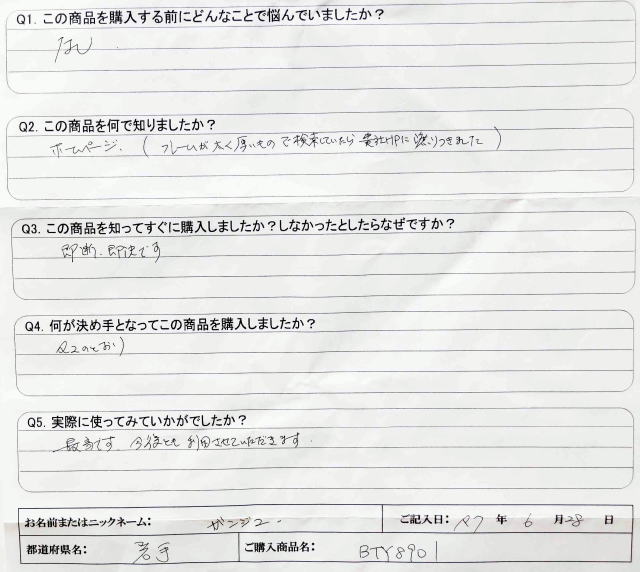 Q1. この商品を購入する前にどんなことで悩んでいましたか？
なし
Q2. この商品を何で知りましたか？
ホームページ. (フレームが太く厚いもので検索していたら貴社HPに辿りつきました)
Q3. この商品を知ってすぐに購入しましたか？しなかったとしたらなぜですか？
即断、即決です
Q4. 何が決め手となってこの商品を購入しましたか？
Q2のとおり
Q5. 実際に使ってみていかがでしたか？
最高です 今後とも利用させていただきます.
お名前またはニックネーム： ご記入日： 年 6 月 28 日
都道府県名： 岩手 ご購入商品名： BTY8901